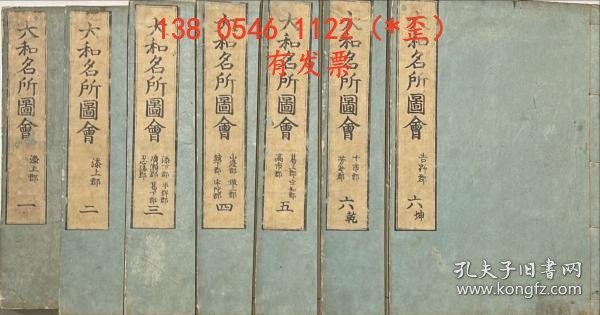 138 0546 1122 (*歪)
有发票
大和名所圖會
添上郡
一
大和名所圖會
添上郡
二
大和名所圖會
添下郡 平群郡
廣瀬郡 葛下郡
忍海郡
三
大和名所圖會
山邊郡 城上郡
城下郡 宇陀郡
四
大和名所圖會
葛上郡 宇智郡
高市郡
五
大和名所圖會
十市郡
六乾
大和名所圖會
吉野郡
六坤
孔夫子旧书网
www.kongfz.com